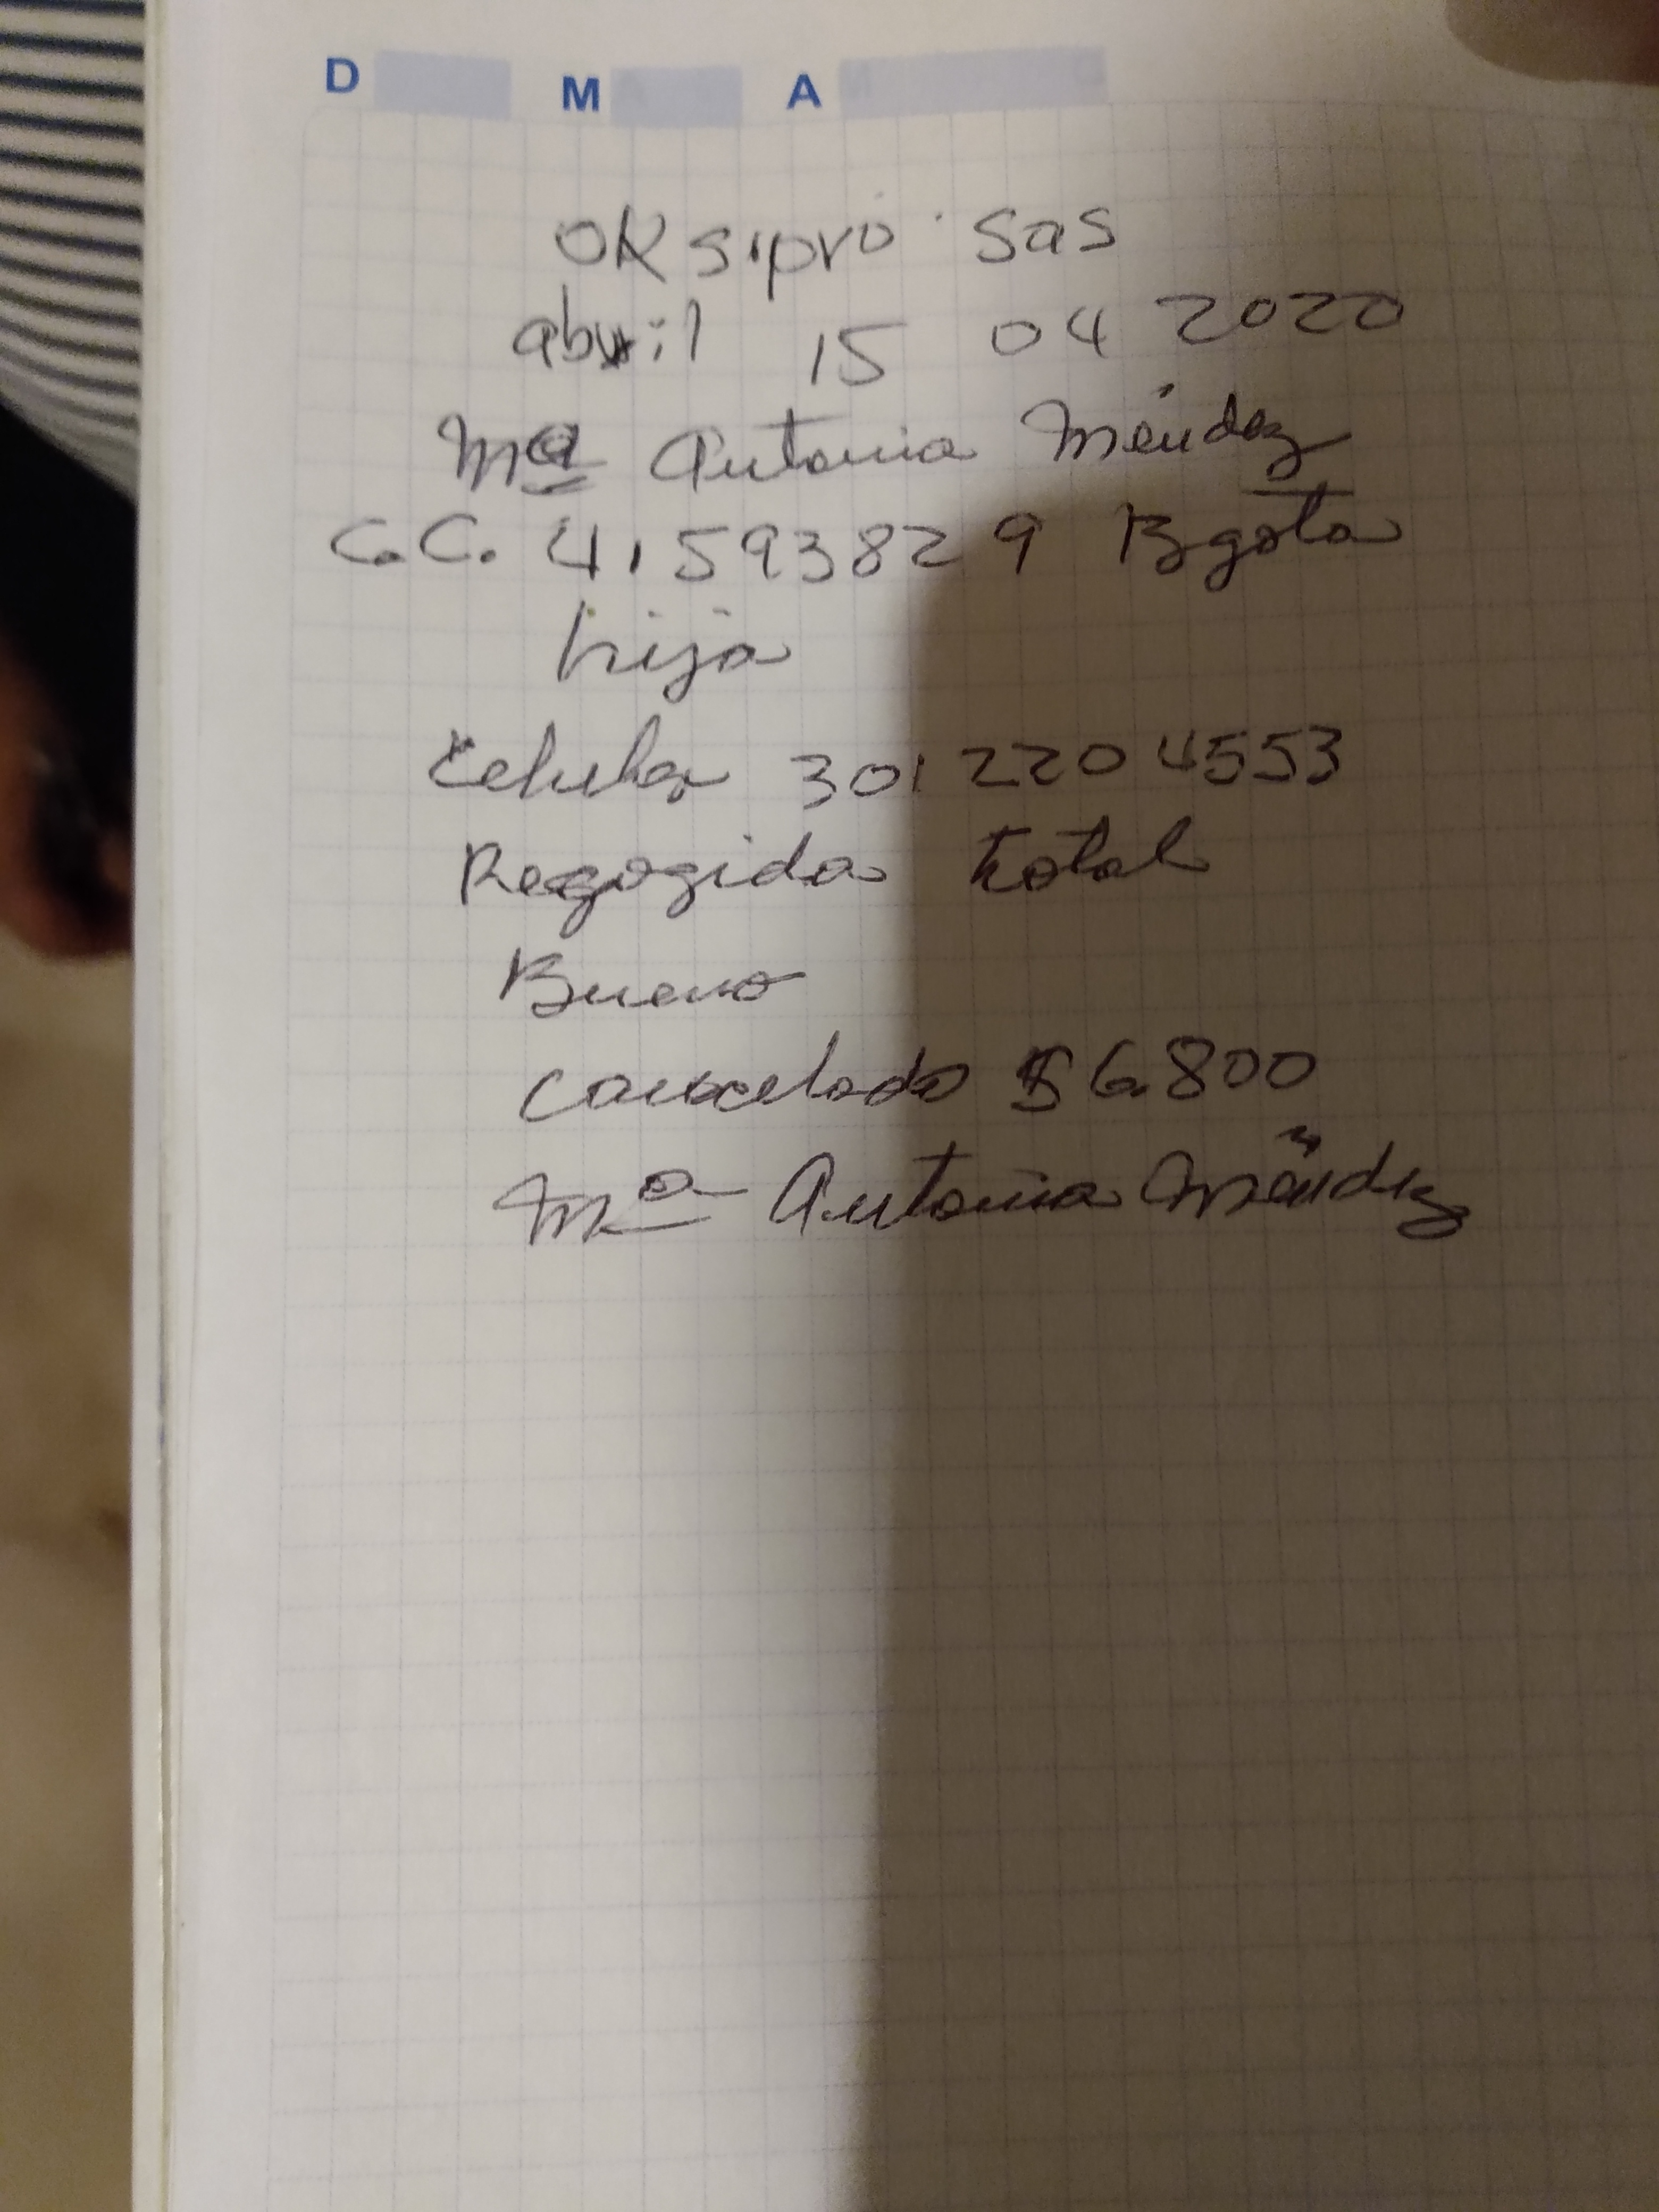 D M A
OK sipro sas
abril 15 04 2020
Mª Antonia Méndez
C.C. 41593829 Bgota
hija
Celular 301 220 4553
Regogida total
Bueno
Cancelado $ 6.800
Mª Antonia Méndez